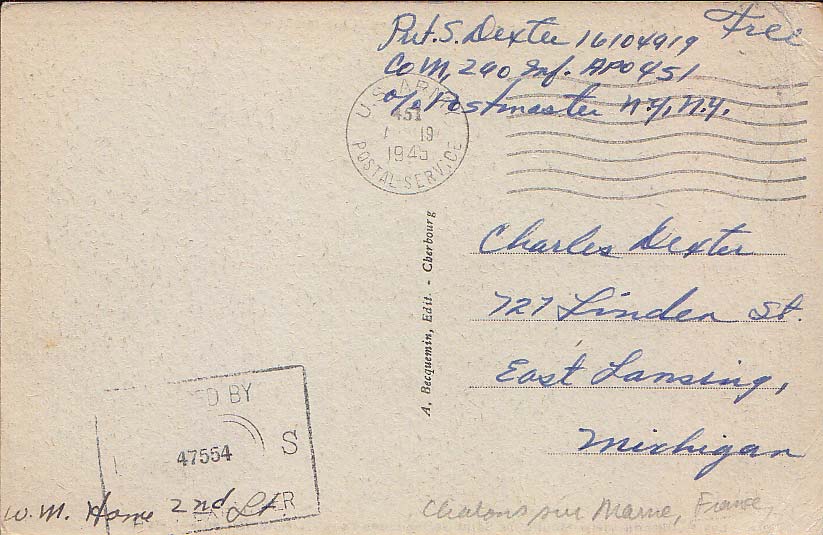 Pvt. S. Dexter 16104919
Free
Co M, 260 Inf. APO 451
c/o Postmaster N.Y, N.Y.
U.S. ARMY
451
19
1945
POSTAL SERVICE
A. Becquemin, Edit. - Cherbourg
Charles Dexter
727 Linden St.
East Lansing,
Michigan
BY
47554 S
W. M. 2nd Lt.
Chalons sur Marne, France